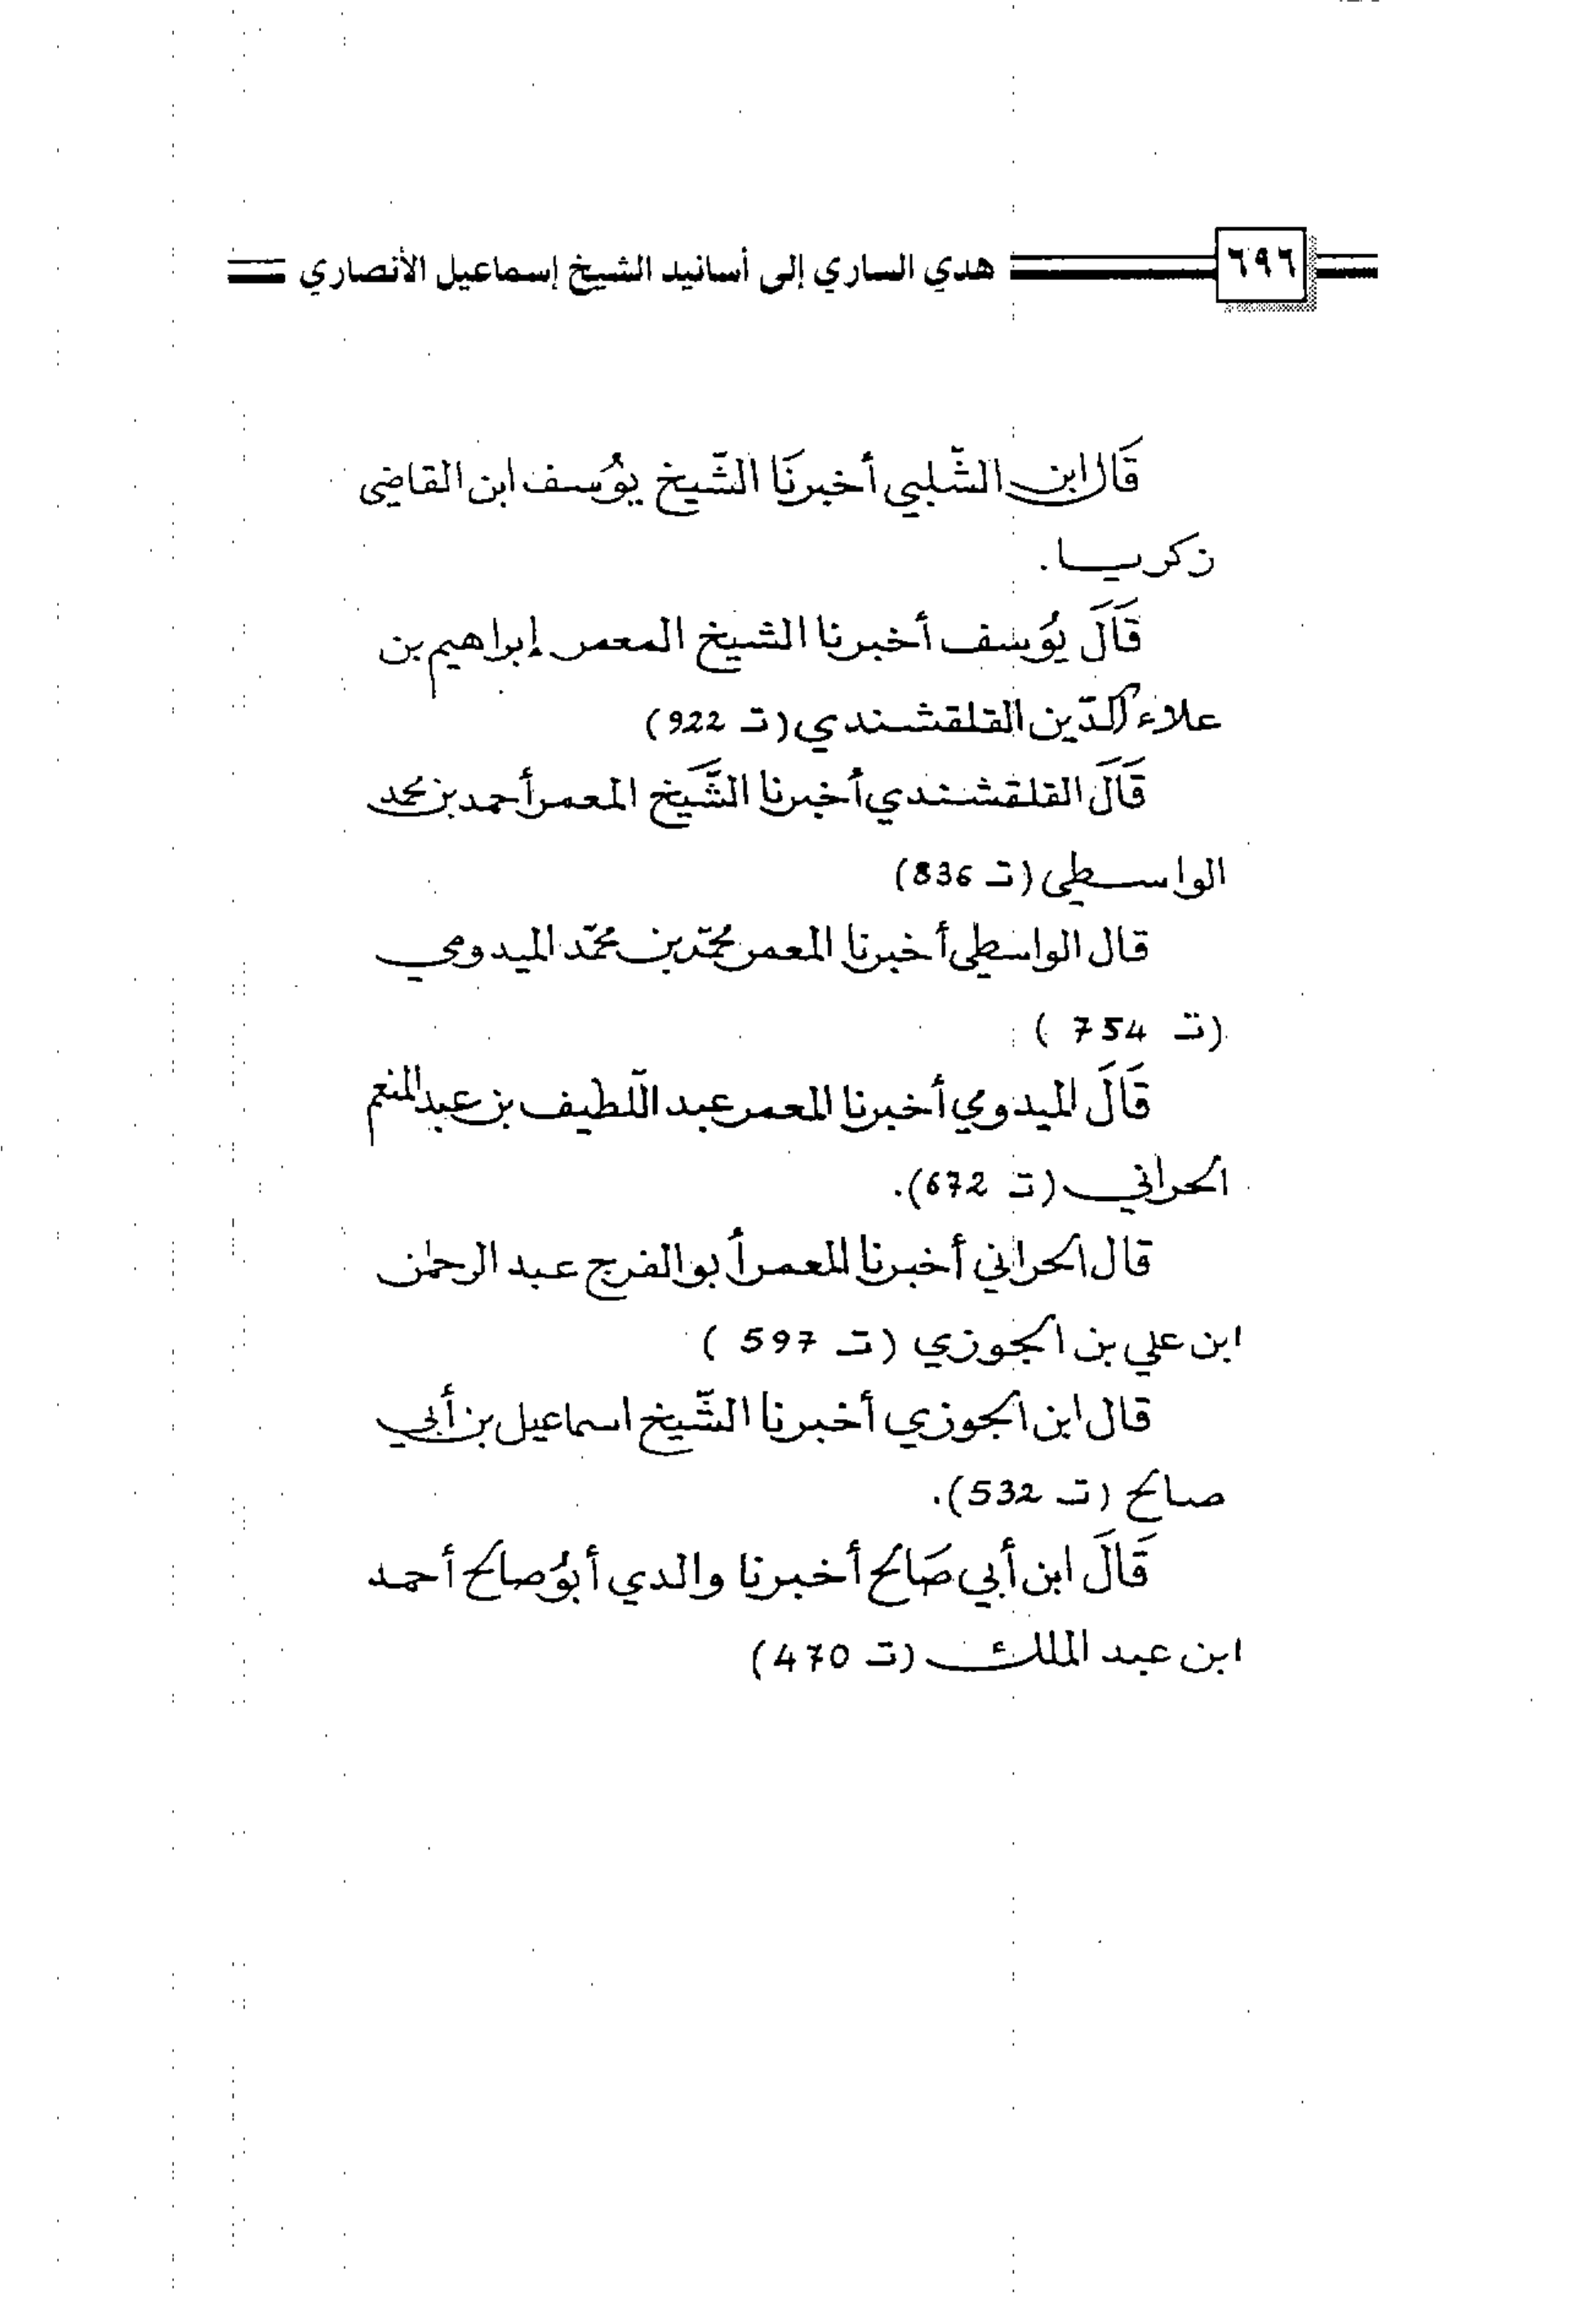 ٦٩٦ هدي الساري إلى أسانيد الشيخ إسماعيل الأنصاري
قَال ابن الشّلبي أخبرنَا الشّيخ يوُسف ابن القاضي
زكريا .
قَالَ يوُسف أخبرنا الشيخ المعمر إبراهيم بن
علاء الدّين القلقشندي (تـ 922)
قَالَ القلقشندي أخبرنا الشَّيخ المعمر أحمد بن محمد
الواسطي (تـ 836)
قال الواسطي أخبرنا المعمر محمّد بن محمّد الميدومي
(تـ 754 )
قَالَ الميدومي أخبرنا المعمر عبد اللّطيف بن عبد المنعم
الحراني (تـ 672).
قال الحراني أخبرنا المعمر أبو الفرج عبد الرحمٰن
ابن علي بن الجوزي (تـ 597 )
قال ابن الجوزي أخبرنا الشّيخ اسماعيل بن أبي
صالح (تـ 532).
قَالَ ابن أبي صَالح أخبرنا والدي أبوُ صالح أحمد
ابن عبد الملك (تـ 470)